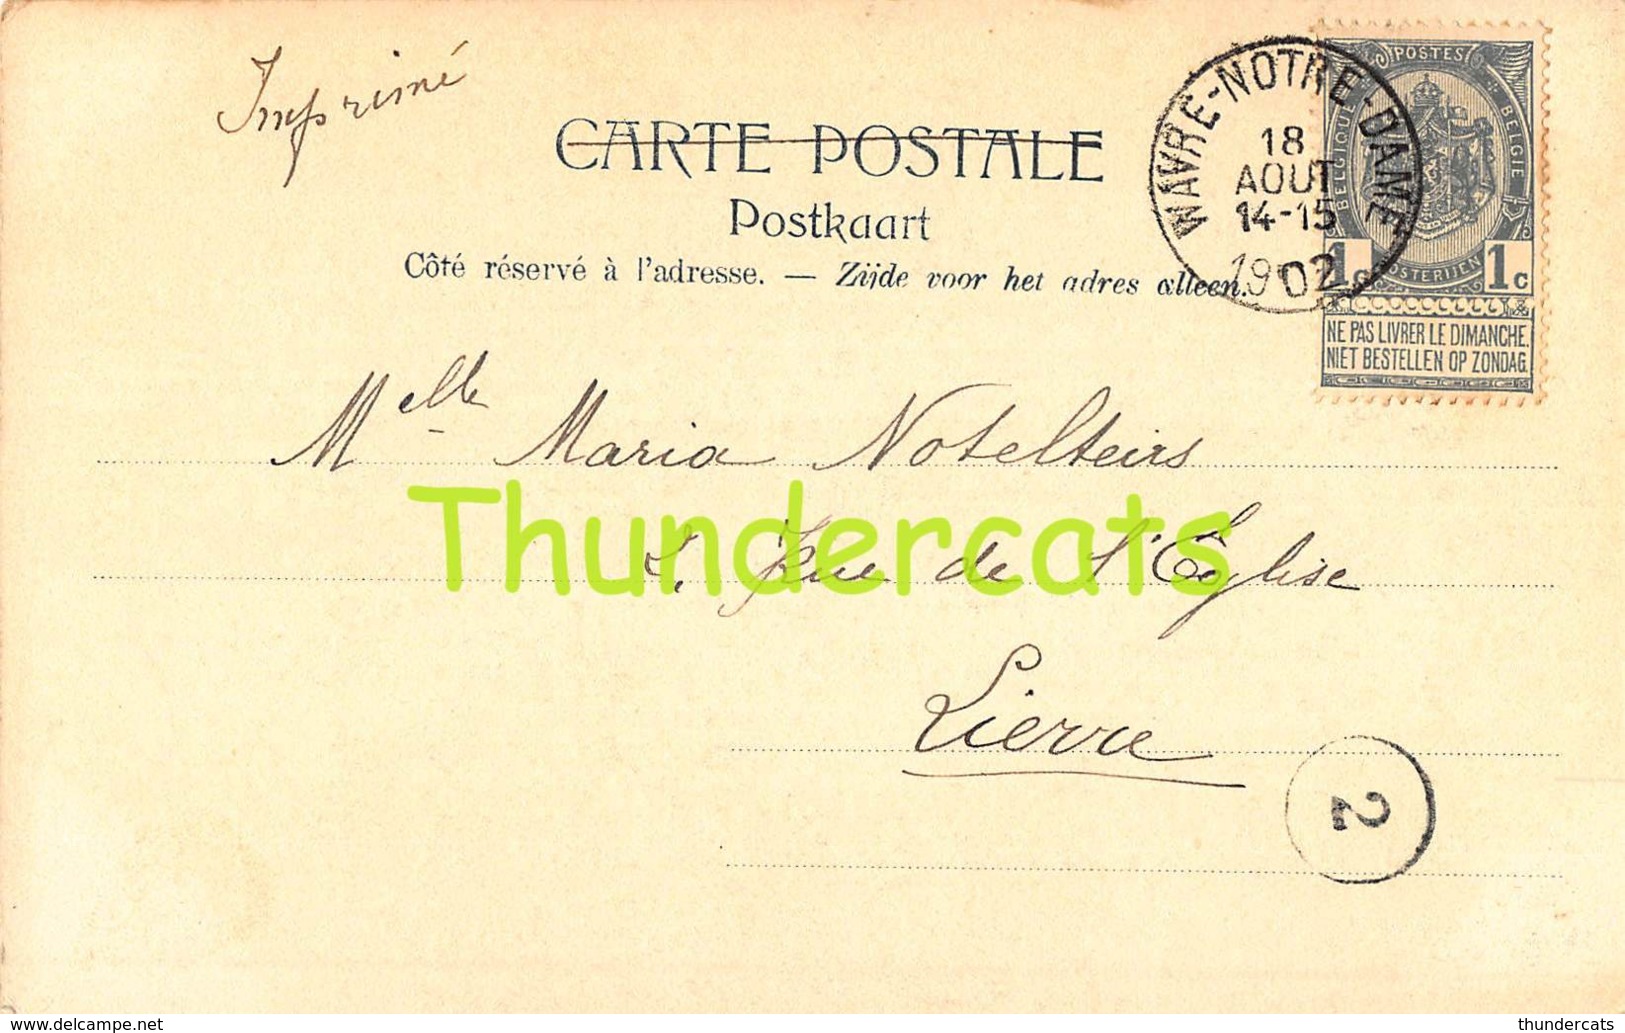 Imprimé
CARTE POSTALE
Postkaart
Côté réservé à l'adresse. — Zijde voor het adres alleen.
WAVRE-NOTRE-DAME
18
AOUT
14-15
1902
POSTES
BELGIQUE
BELGIE
POSTERIJEN
1c 1c
NE PAS LIVRER LE DIMANCHE.
NIET BESTELLEN OP ZONDAG.
Melle Maria Notelteirs
Rue de l'Église
Lierre
2
Thundercats
delcampe.net
thundercats